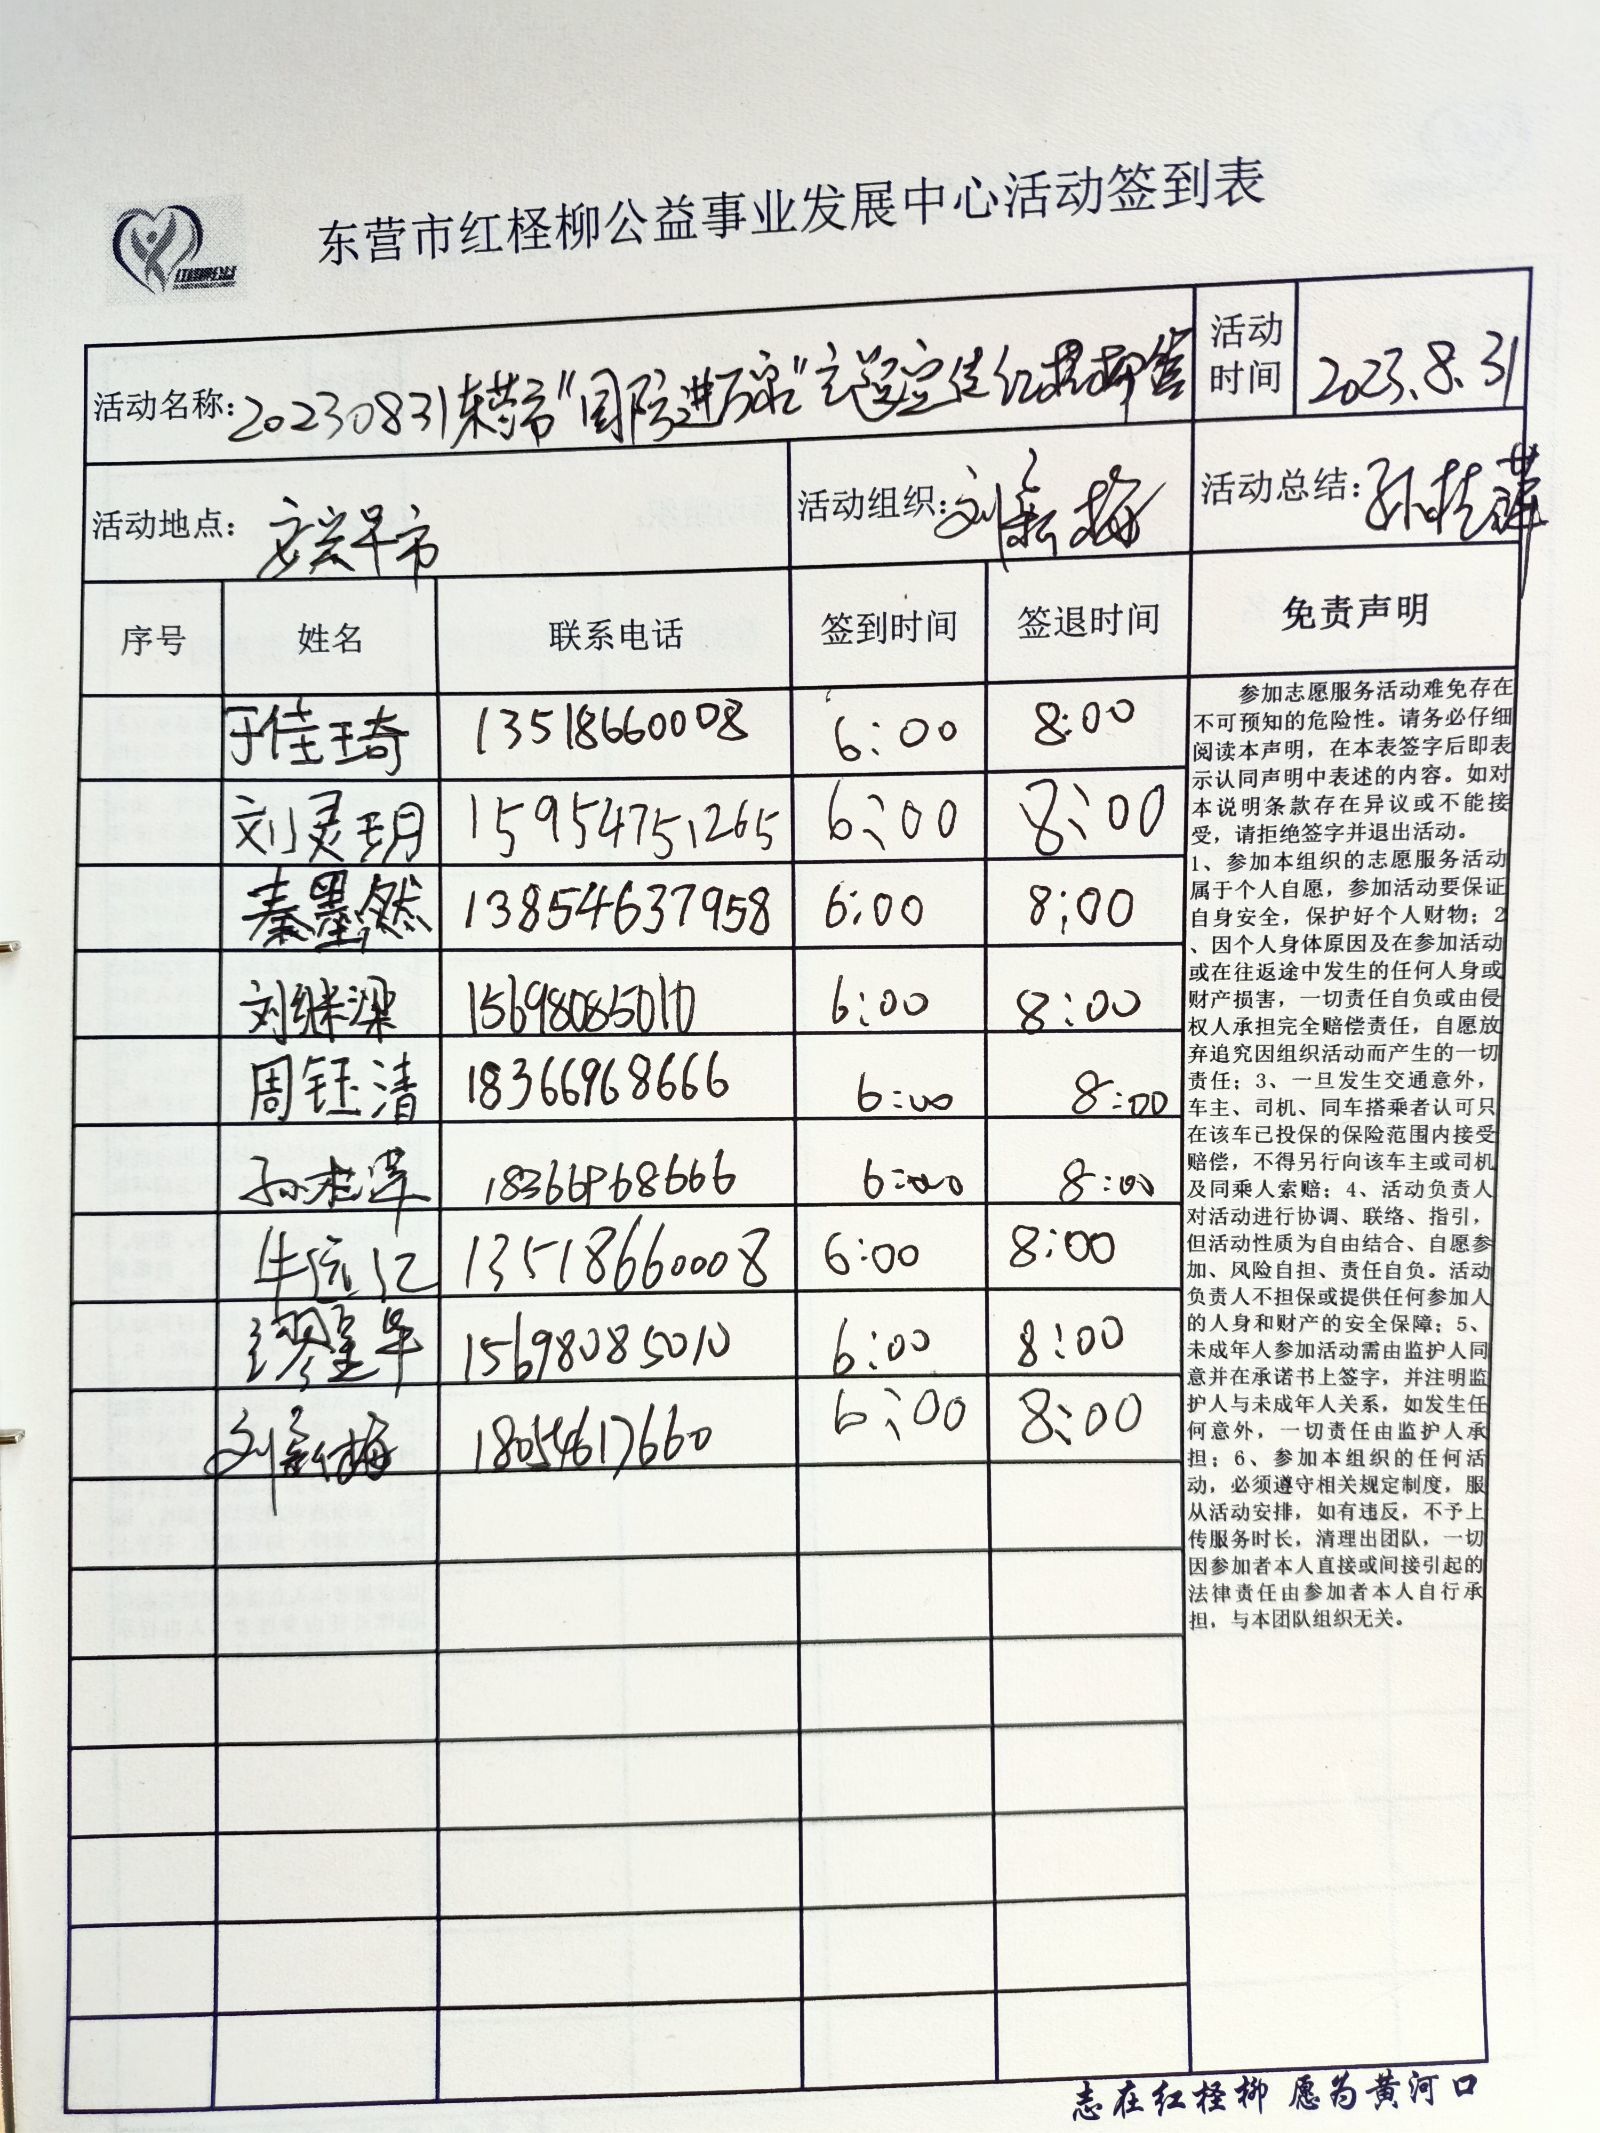 东营市红柽柳公益事业发展中心活动签到表
活动名称：20230831东营市“国防进万家”主题宣传红柽柳营
活动时间
2023.8.31
活动地点：安兴早市
活动组织：刘新梅
活动总结：孙桂萍
序号 姓名 联系电话 签到时间 签退时间 免责声明
于佳琦 13518660008 6:00 8:00
刘灵玥 15954751265 6:00 8:00
秦墨然 13854637958 6:00 8:00
刘继深 15698085010 6:00 8:00
周钰清 18366968666 6:00 8:00
孙桂萍 18366968666 6:00 8:00
牛远亿 13518660008 6:00 8:00
15698085010 6:00 8:00
刘新梅 18054617660 6:00 8:00
参加志愿服务活动难免存在
不可预知的危险性。请务必仔细
阅读本声明，在本表签字后即表
示认同声明中表述的内容。如对
本说明条款存在异议或不能接
受，请拒绝签字并退出活动。
1、参加本组织的志愿服务活动
属于个人自愿，参加活动要保证
自身安全，保护好个人财物；2
、因个人身体原因及在参加活动
或在往返途中发生的任何人身或
财产损害，一切责任自负或由侵
权人承担完全赔偿责任，自愿放
弃追究因组织活动而产生的一切
责任；3、一旦发生交通意外，
车主、司机、同车搭乘者认可只
在该车已投保的保险范围内接受
赔偿，不得另行向该车主或司机
及同乘人索赔；4、活动负责人
对活动进行协调、联络、指引，
但活动性质为自由结合、自愿参
加、风险自担、责任自负。活动
负责人不担保或提供任何参加人
的人身和财产的安全保障；5、
未成年人参加活动需由监护人同
意并在承诺书上签字，并注明监
护人与未成年人关系，如发生任
何意外，一切责任由监护人承
担；6、参加本组织的任何活
动，必须遵守相关规定制度，服
从活动安排，如有违反，不予上
传服务时长，清理出团队，一切
因参加者本人直接或间接引起的
法律责任由参加者本人自行承
担，与本团队组织无关。
志在红柽柳 愿为黄河口